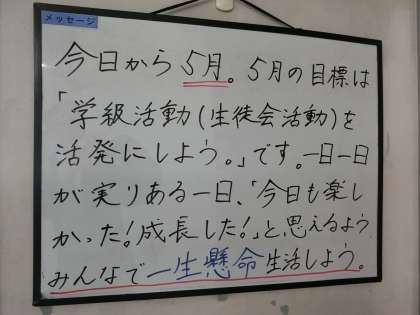 メッセージ
今日から5月。5月の目標は
「学級活動(生徒会活動)を
活発にしよう。」です。一日一日
が実りある一日、「今日も楽し
かった!成長した!」と思えるよう
みんなで一生懸命生活しよう。